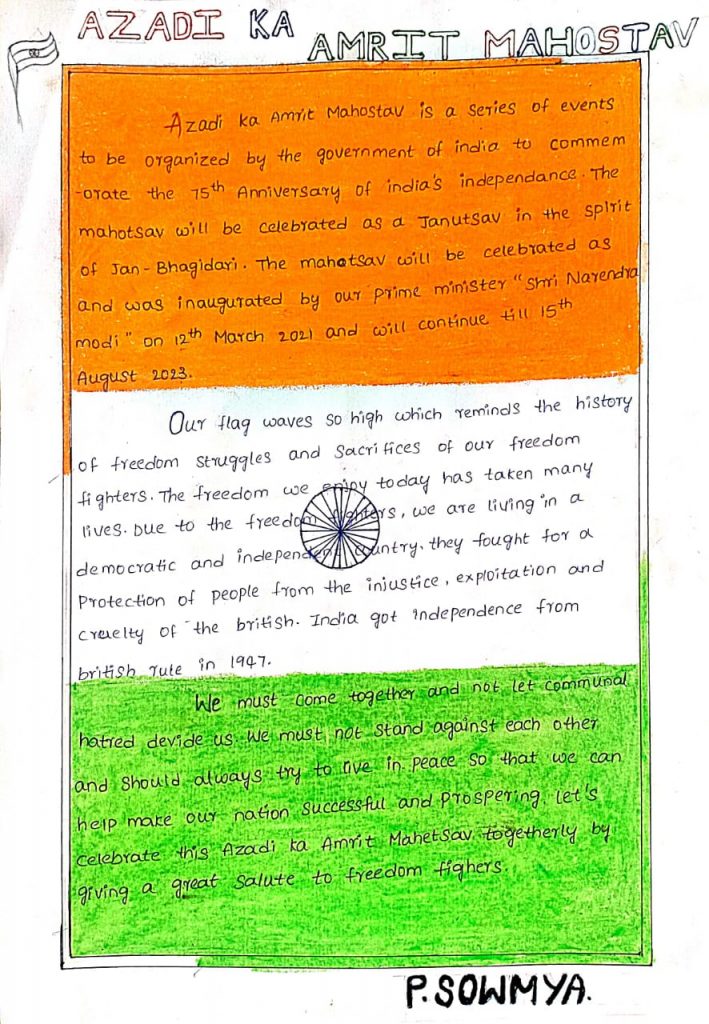 AZADI KA
AMRIT MAHOSTAV
Azadi ka Amrit Mahostav is a series of events
to be organized by the government of india to commem
-orate the 75th Anniversary of india's independance. The
mahotsav will be celebrated as a Janutsav in the spirit
of Jan-Bhagidari. The mahotsav will be celebrated as
and was inaugurated by our prime minister "Shri Narendra
modi" on 12th March 2021 and will continue till 15th
August 2023.
Our flag waves so high which reminds the history
of freedom struggles and sacrifices of our freedom
fighters. The freedom we enjoy today has taken many
lives. Due to the freedom fighters, we are living in a
democratic and independent country. they fought for a
Protection of people from the injustice, exploitation and
cruelty of the british. India got independence from
british rule in 1947.
We must come together and not let communal
hatred devide us. We must not stand against each other
and should always try to live in peace so that we can
help make our nation successful and prospering. let's
celebrate this Azadi ka Amrit Mahetsav togetherly by
giving a great salute to freedom fighers.
P. SOWMYA.